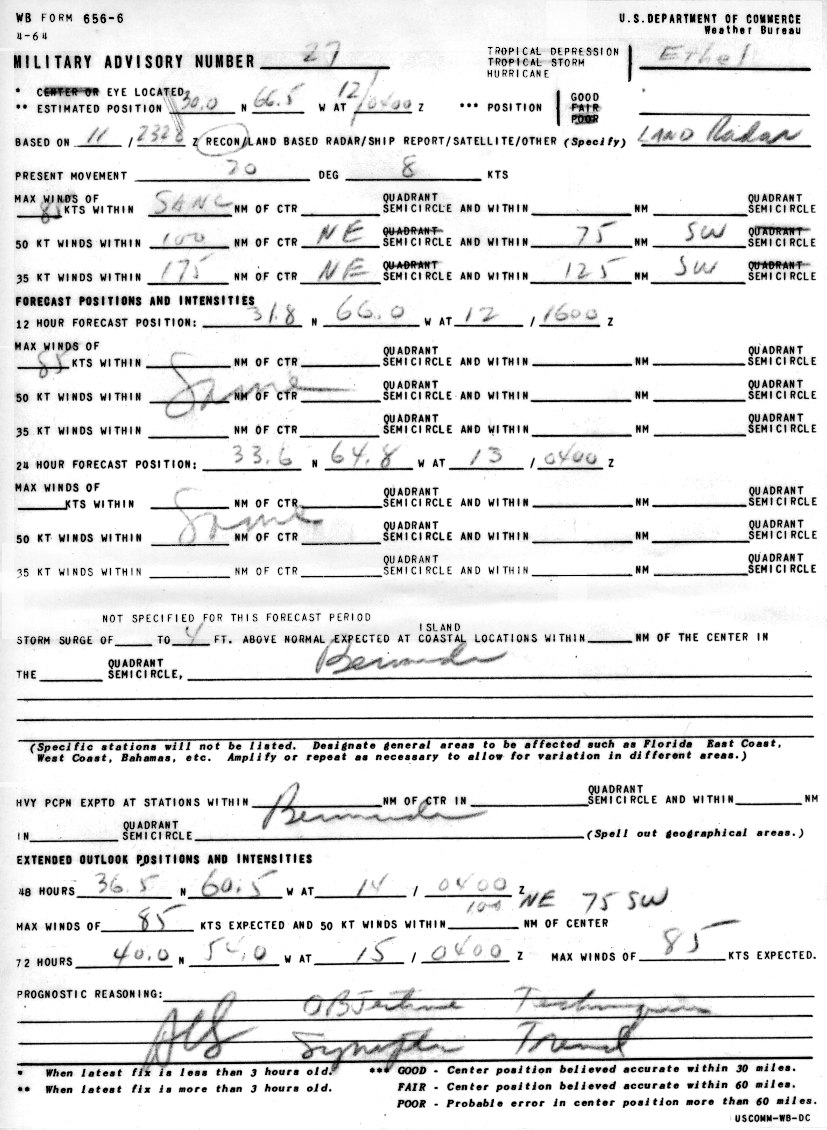 WB FORM 656-6
4-64
U.S. DEPARTMENT OF COMMERCE
Weather Bureau
MILITARY ADVISORY NUMBER 27
TROPICAL DEPRESSION
TROPICAL STORM
HURRICANE
Ethel
* CENTER OR EYE LOCATED
** ESTIMATED POSITION 30.0 N 66.5 W AT 12/0400 Z *** POSITION GOOD FAIR POOR
BASED ON 11 / 2328 Z RECON/LAND BASED RADAR/SHIP REPORT/SATELLITE/OTHER (Specify) LAND Radar
PRESENT MOVEMENT 20 DEG 8 KTS
MAX WINDS OF
85 KTS WITHIN SANC NM OF CTR QUADRANT SEMICIRCLE AND WITHIN NM QUADRANT SEMICIRCLE
50 KT WINDS WITHIN 100 NM OF CTR NE QUADRANT SEMICIRCLE AND WITHIN 75 NM SW QUADRANT SEMICIRCLE
35 KT WINDS WITHIN 175 NM OF CTR NE QUADRANT SEMICIRCLE AND WITHIN 125 NM SW QUADRANT SEMICIRCLE
FORECAST POSITIONS AND INTENSITIES
12 HOUR FORECAST POSITION: 31.8 N 66.0 W AT 12 / 1600 Z
MAX WINDS OF
85 KTS WITHIN NM OF CTR QUADRANT SEMICIRCLE AND WITHIN NM QUADRANT SEMICIRCLE
50 KT WINDS WITHIN Same NM OF CTR QUADRANT SEMICIRCLE AND WITHIN NM QUADRANT SEMICIRCLE
35 KT WINDS WITHIN NM OF CTR QUADRANT SEMICIRCLE AND WITHIN NM QUADRANT SEMICIRCLE
24 HOUR FORECAST POSITION: 33.6 N 64.8 W AT 13 / 0400 Z
MAX WINDS OF
KTS WITHIN NM OF CTR QUADRANT SEMICIRCLE AND WITHIN NM QUADRANT SEMICIRCLE
50 KT WINDS WITHIN Same NM OF CTR QUADRANT SEMICIRCLE AND WITHIN NM QUADRANT SEMICIRCLE
35 KT WINDS WITHIN NM OF CTR QUADRANT SEMICIRCLE AND WITHIN NM QUADRANT SEMICIRCLE
NOT SPECIFIED FOR THIS FORECAST PERIOD
STORM SURGE OF TO 4 FT. ABOVE NORMAL EXPECTED AT ISLAND COASTAL LOCATIONS WITHIN NM OF THE CENTER IN
THE QUADRANT SEMICIRCLE, Bermuda
(Specific stations will not be listed. Designate general areas to be affected such as Florida East Coast,
West Coast, Bahamas, etc. Amplify or repeat as necessary to allow for variation in different areas.)
HVY PCPN EXPTD AT STATIONS WITHIN Bermuda NM OF CTR IN QUADRANT SEMICIRCLE AND WITHIN NM
IN QUADRANT SEMICIRCLE (Spell out geographical areas.)
EXTENDED OUTLOOK POSITIONS AND INTENSITIES
48 HOURS 36.5 N 60.5 W AT 14 / 0400 Z
MAX WINDS OF 85 KTS EXPECTED AND 50 KT WINDS WITHIN 100 NE 75 SW NM OF CENTER
72 HOURS 40.0 N 54.0 W AT 15 / 0400 Z MAX WINDS OF 85 KTS EXPECTED.
PROGNOSTIC REASONING: OBJective Techniques
Synoptic Trend
* When latest fix is less than 3 hours old. *** GOOD - Center position believed accurate within 30 miles.
** When latest fix is more than 3 hours old. FAIR - Center position believed accurate within 60 miles.
POOR - Probable error in center position more than 60 miles.
USCOMM-WB-DC